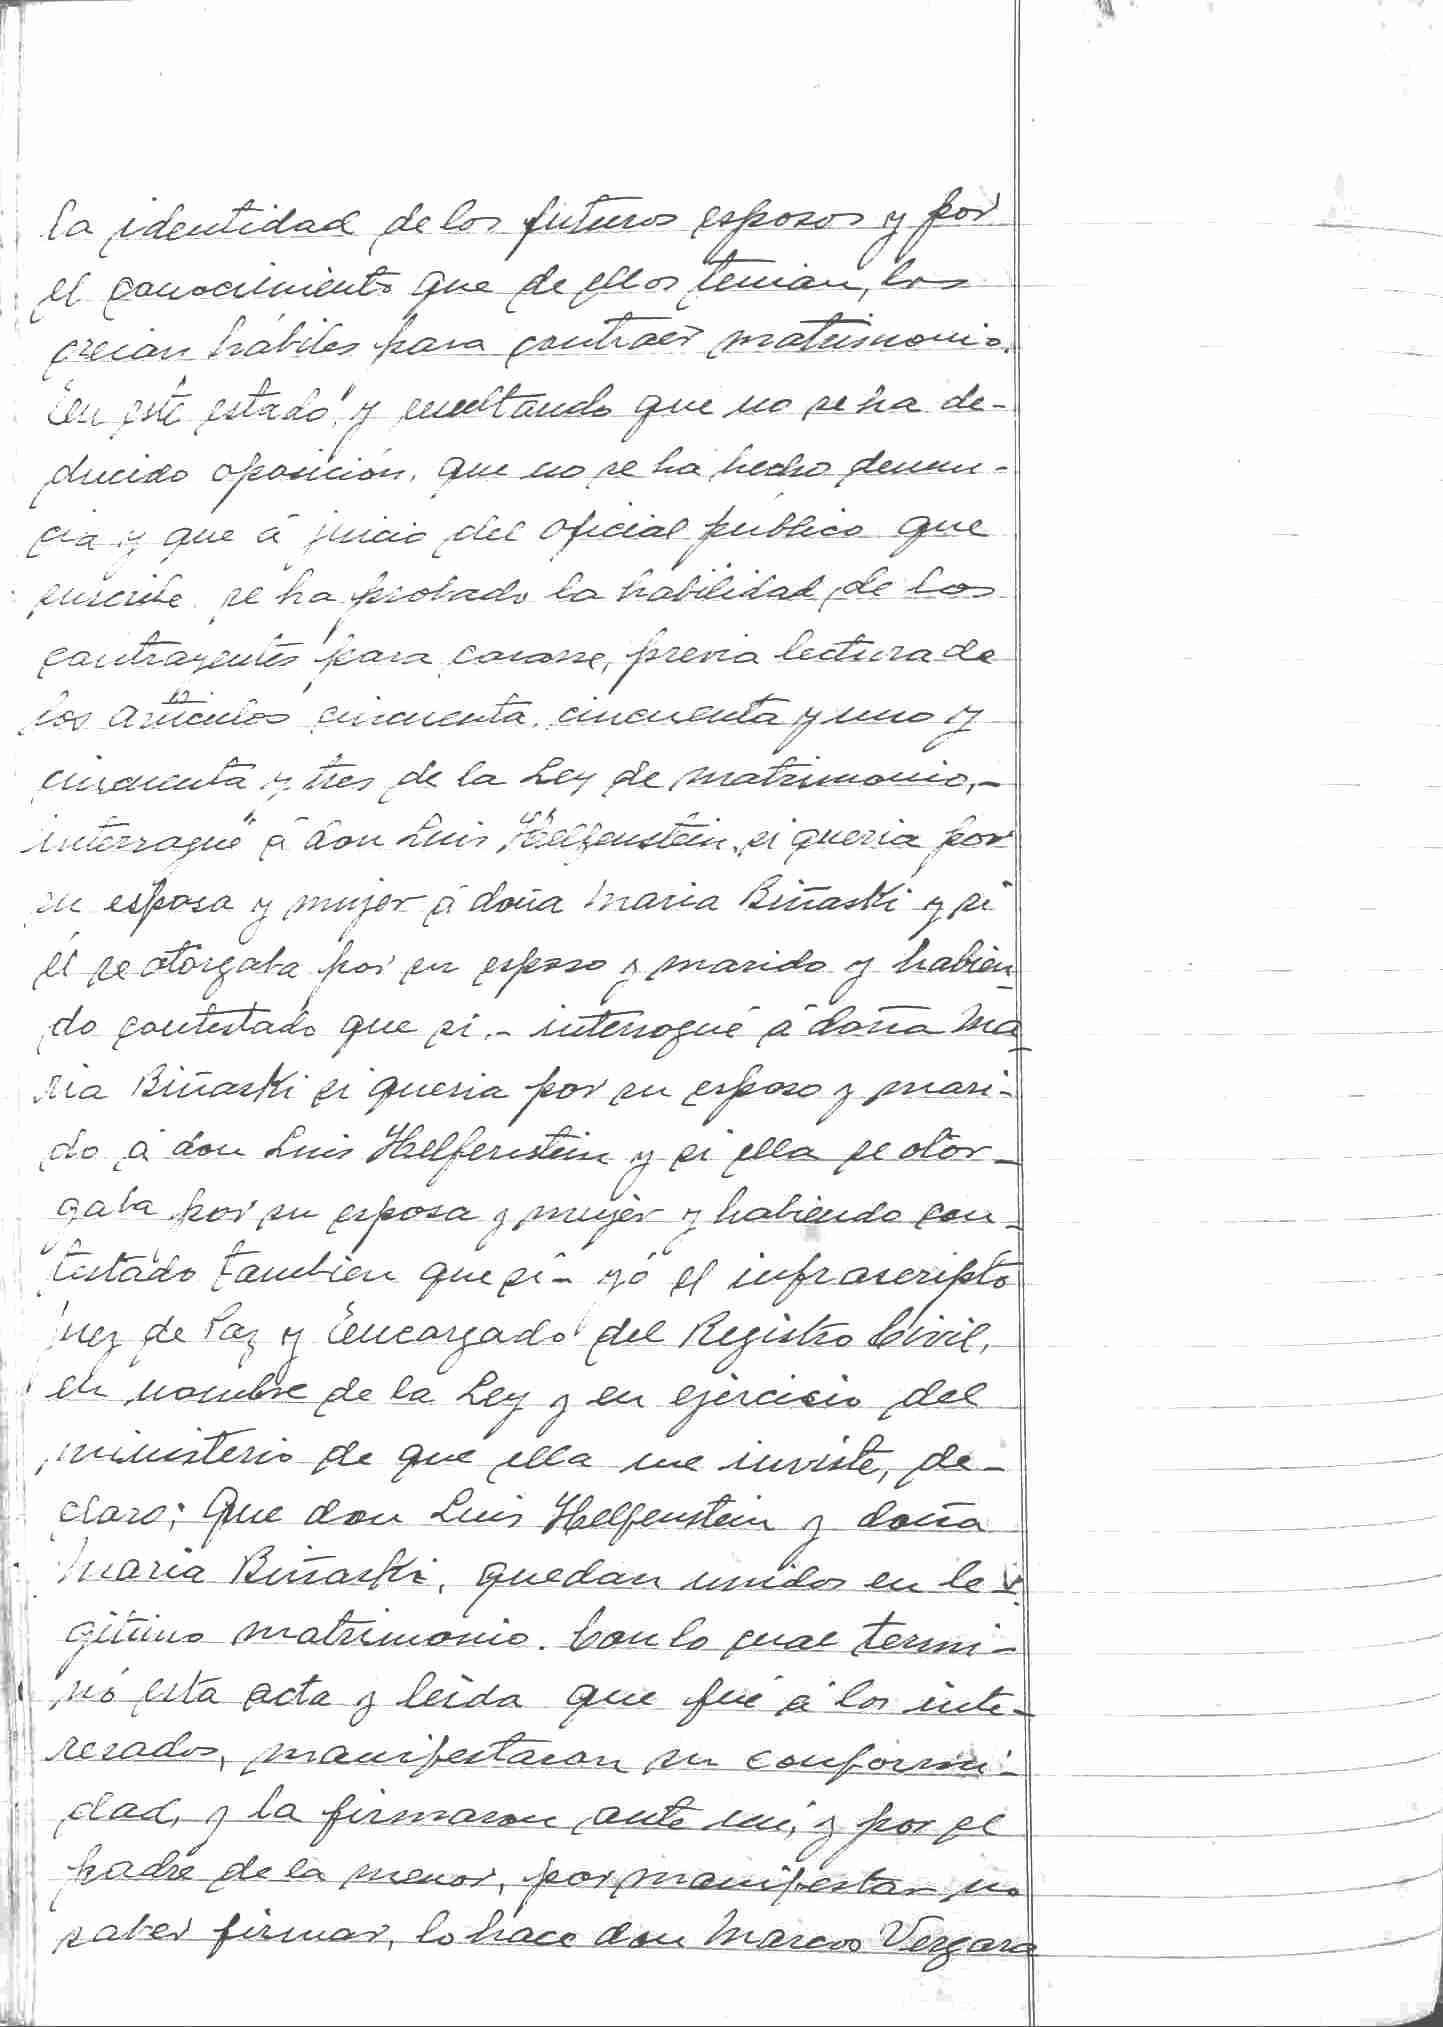 la identidad de los futuros esposos y por
el conocimiento que de ellos tenian, los
creian hábiles para contraer matrimonio.
En este estado y resultando que no se ha de-
ducido oposición, que no se ha hecho denun-
cia y que á juicio del oficial público que
suscribe se ha probado la habilidad de los
contrayentes para casarse, previa lectura de
los articulos cincuenta, cincuenta y uno y
cincuenta y tres de la Ley de matrimonio,-
interrogué á don Luis Helfenstein, si queria por
su esposa y mujer á doña Maria Biñaski y si
él se otorgaba por su esposo y marido y habien
do contestado que si.- interrogué á doña Ma
ria Biñaski si queria por su esposo y mari-
do á don Luis Helfenstein y si ella se otor-
gaba por su esposa y mujer y habiendo con-
testado tambien que si- yó el infrascripto
Juez de Paz y Encargado del Registro Civil,
en nombre de la Ley y en ejercicio del
ministerio de que ella me inviste, de-
claro: Que don Luis Helfenstein y doña
Maria Biñaski, quedan unidos en le
gitimo matrimonio. Con lo cual termi-
nó esta acta y leida que fué á los inte-
resados, manifestaron su conformi-
dad, y la firmaron ante mi, y por el
padre de la menor, por manifestar no
saber firmar, lo hace don Marcos Vergara